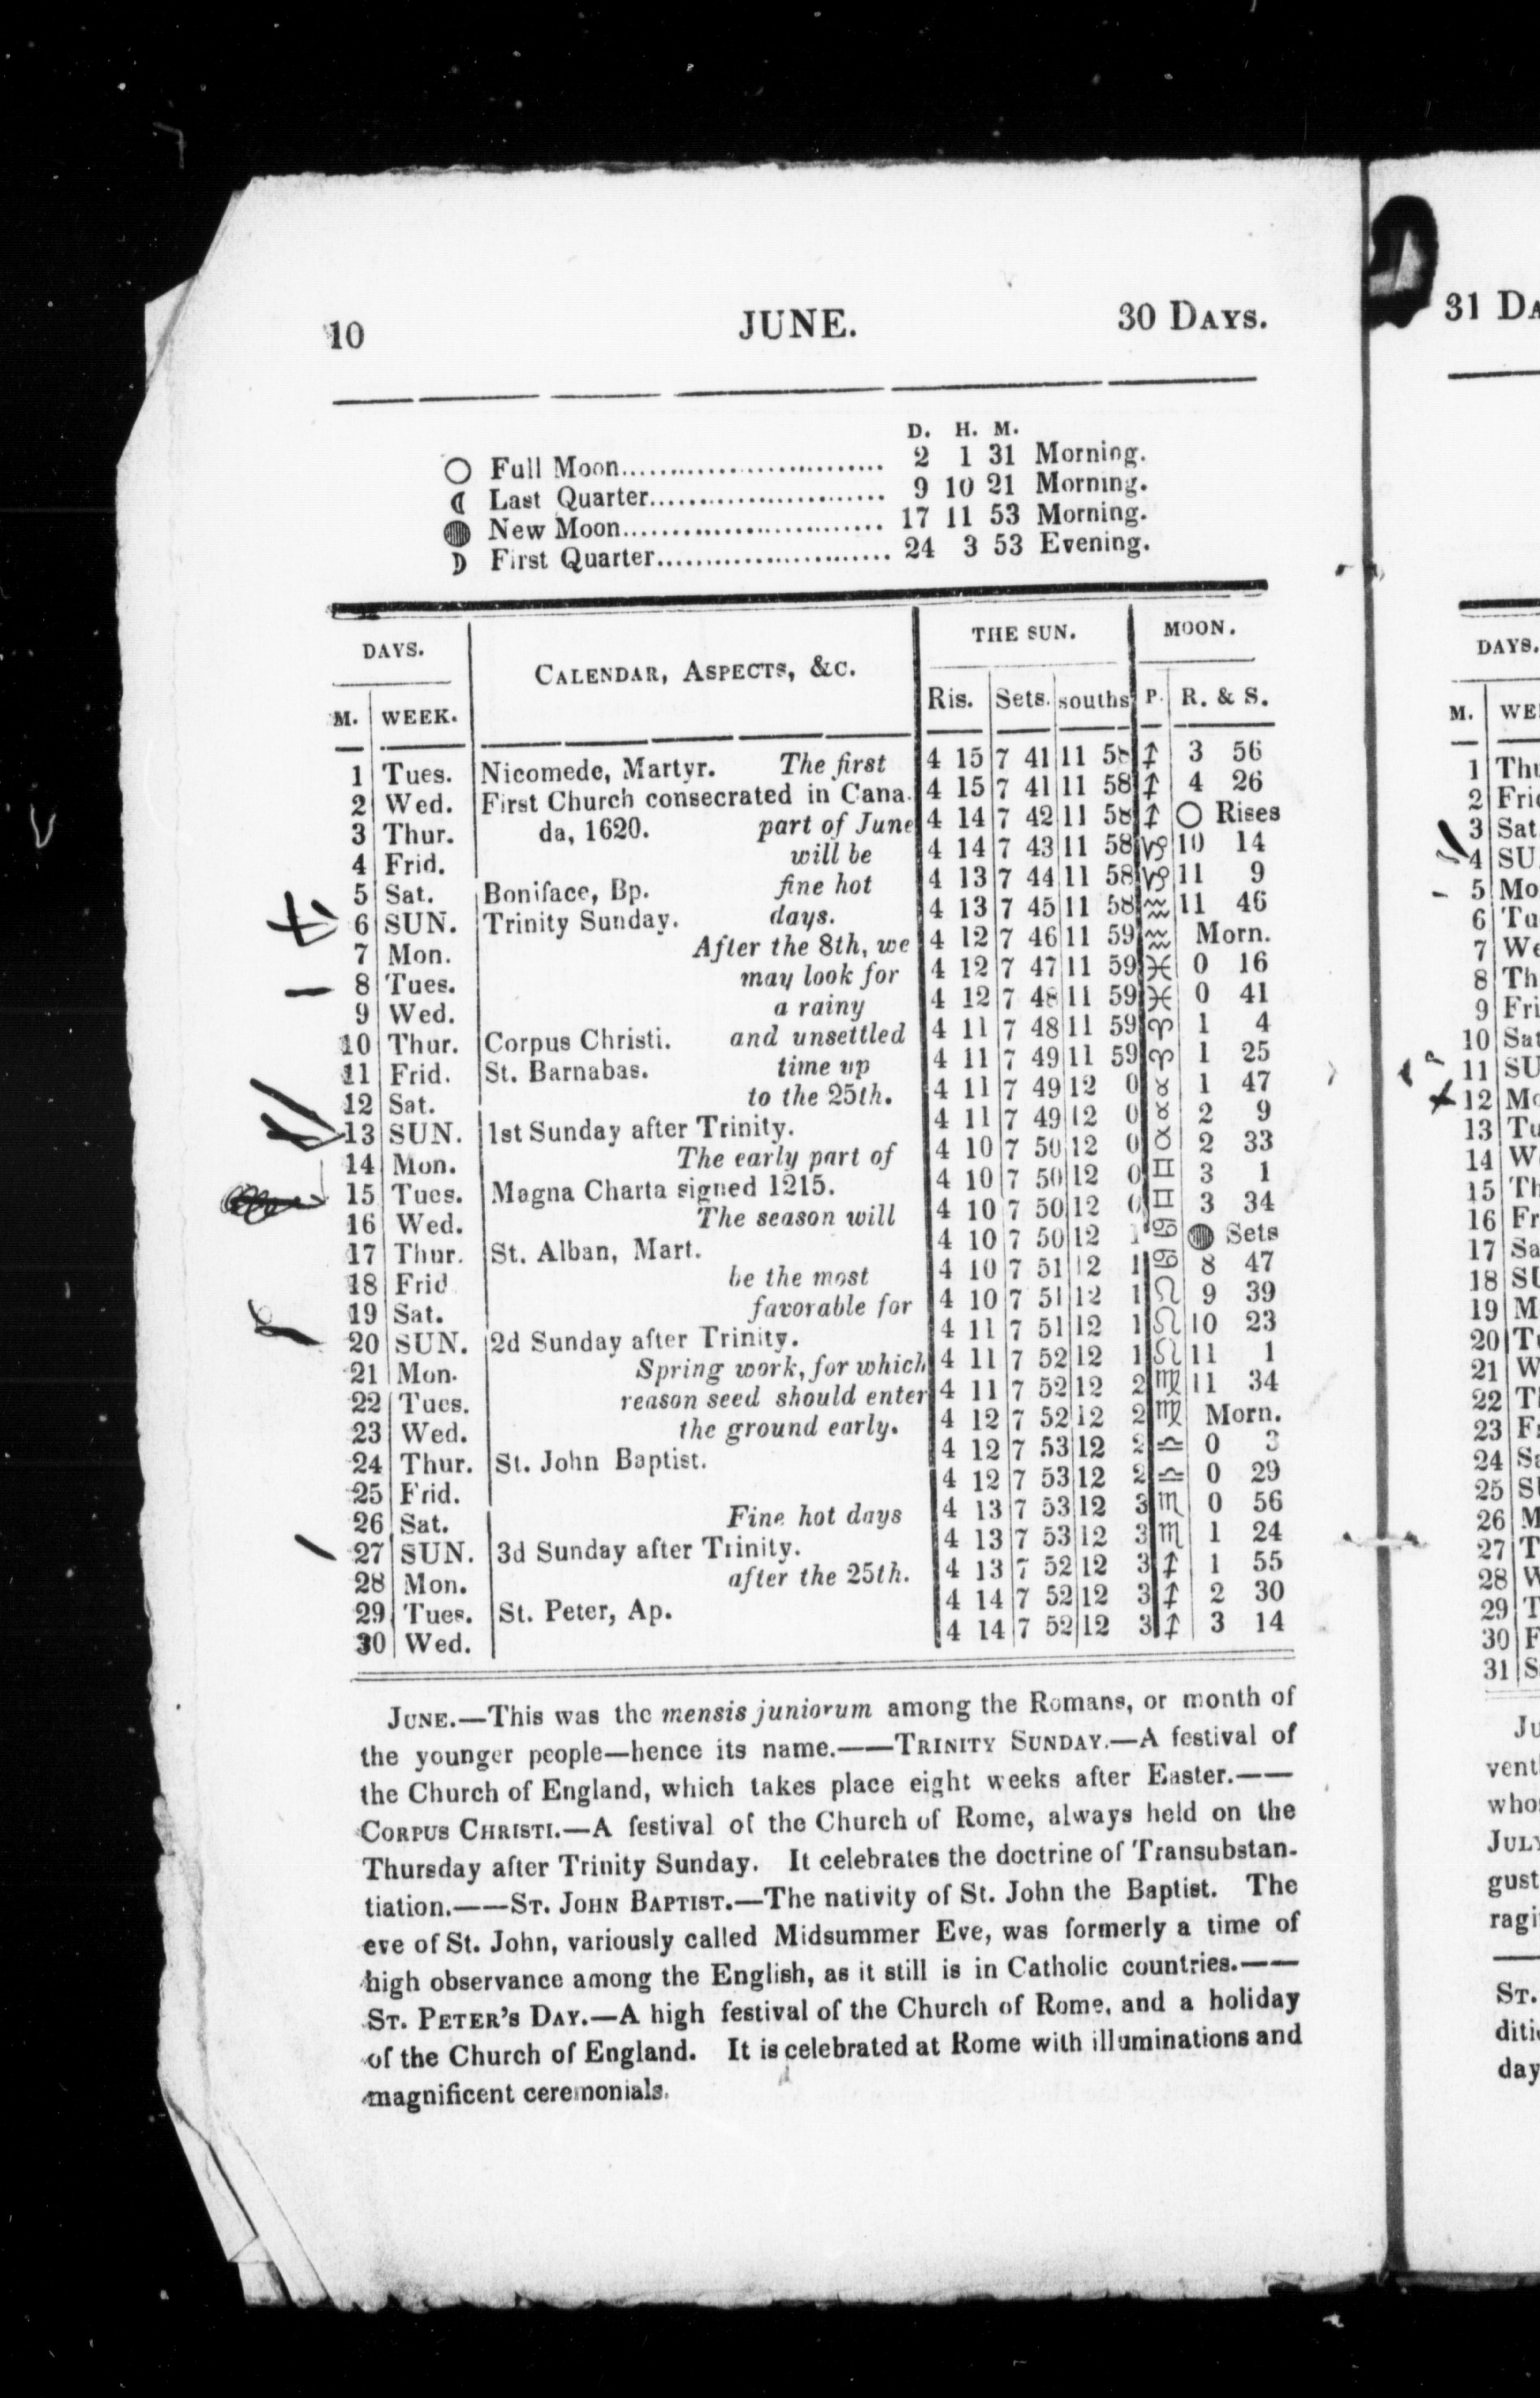 10 JUNE. 30 DAYS.
D. H. M.
○ Full Moon........................... 2 1 31 Morning.
☾ Last Quarter........................ 9 10 21 Morning.
● New Moon........................... 17 11 53 Morning.
☽ First Quarter........................ 24 3 53 Evening.
DAYS. CALENDAR, ASPECTS, &c. THE SUN. MOON.
M. WEEK. Ris. Sets. souths P. R. & S.
1 Tues. Nicomede, Martyr. The first 4 15 7 41 11 58 ♐ 3 56
2 Wed. First Church consecrated in Cana- 4 15 7 41 11 58 ♐ 4 26
3 Thur. da, 1620. part of June 4 14 7 42 11 58 ♐ ○ Rises
4 Frid. will be 4 14 7 43 11 58 ♑ 10 14
5 Sat. Boniface, Bp. fine hot 4 13 7 44 11 58 ♑ 11 9
6 SUN. Trinity Sunday. days. 4 13 7 45 11 58 ♒ 11 46
7 Mon. After the 8th, we 4 12 7 46 11 59 ♒ Morn.
8 Tues. may look for 4 12 7 47 11 59 ♓ 0 16
9 Wed. a rainy 4 12 7 48 11 59 ♓ 0 41
10 Thur. Corpus Christi. and unsettled 4 11 7 48 11 59 ♈ 1 4
11 Frid. St. Barnabas. time up 4 11 7 49 11 59 ♈ 1 25
12 Sat. to the 25th. 4 11 7 49 12 0 ♉ 1 47
13 SUN. 1st Sunday after Trinity. 4 11 7 49 12 0 ♉ 2 9
14 Mon. The early part of 4 10 7 50 12 0 ♉ 2 33
15 Tues. Magna Charta signed 1215. 4 10 7 50 12 0 ♊ 3 1
16 Wed. The season will 4 10 7 50 12 0 ♊ 3 34
17 Thur. St. Alban, Mart. 4 10 7 50 12 1 ♋ ● Sets
18 Frid be the most 4 10 7 51 12 1 ♋ 8 47
19 Sat. favorable for 4 10 7 51 12 1 ♌ 9 39
20 SUN. 2d Sunday after Trinity. 4 11 7 51 12 1 ♌ 10 23
21 Mon. Spring work, for which 4 11 7 52 12 1 ♌ 11 1
22 Tues. reason seed should enter 4 11 7 52 12 2 ♍ 11 34
23 Wed. the ground early. 4 12 7 52 12 2 ♍ Morn.
24 Thur. St. John Baptist. 4 12 7 53 12 2 ♎ 0 3
25 Frid. 4 12 7 53 12 2 ♎ 0 29
26 Sat. Fine hot days 4 13 7 53 12 3 ♏ 0 56
27 SUN. 3d Sunday after Trinity. 4 13 7 53 12 3 ♏ 1 24
28 Mon. after the 25th. 4 13 7 52 12 3 ♐ 1 55
29 Tues. St. Peter, Ap. 4 14 7 52 12 3 ♐ 2 30
30 Wed. 4 14 7 52 12 3 ♐ 3 14
JUNE.—This was the mensis juniorum among the Romans, or month of
the younger people—hence its name.——TRINITY SUNDAY.—A festival of
the Church of England, which takes place eight weeks after Easter.——
CORPUS CHRISTI.—A festival of the Church of Rome, always held on the
Thursday after Trinity Sunday. It celebrates the doctrine of Transubstan-
tiation.——ST. JOHN BAPTIST.—The nativity of St. John the Baptist. The
eve of St. John, variously called Midsummer Eve, was formerly a time of
high observance among the English, as it still is in Catholic countries.——
ST. PETER'S DAY.—A high festival of the Church of Rome, and a holiday
of the Church of England. It is celebrated at Rome with illuminations and
magnificent ceremonials.
31 DA
DAYS.
M. WE
1 Thu
2 Frid
3 Sat
4 SU
5 Mo
6 Tu
7 We
8 Th
9 Fri
10 Sat
11 SU
12 Mo
13 Tu
14 W
15 Th
16 Fr
17 Sa
18 SU
19 M
20 T
21 W
22 T
23 F
24 Sa
25 S
26 M
27 T
28 W
29 T
30 F
31 S
Ju
vent
who
JULY
gust
ragi
ST.
diti
day